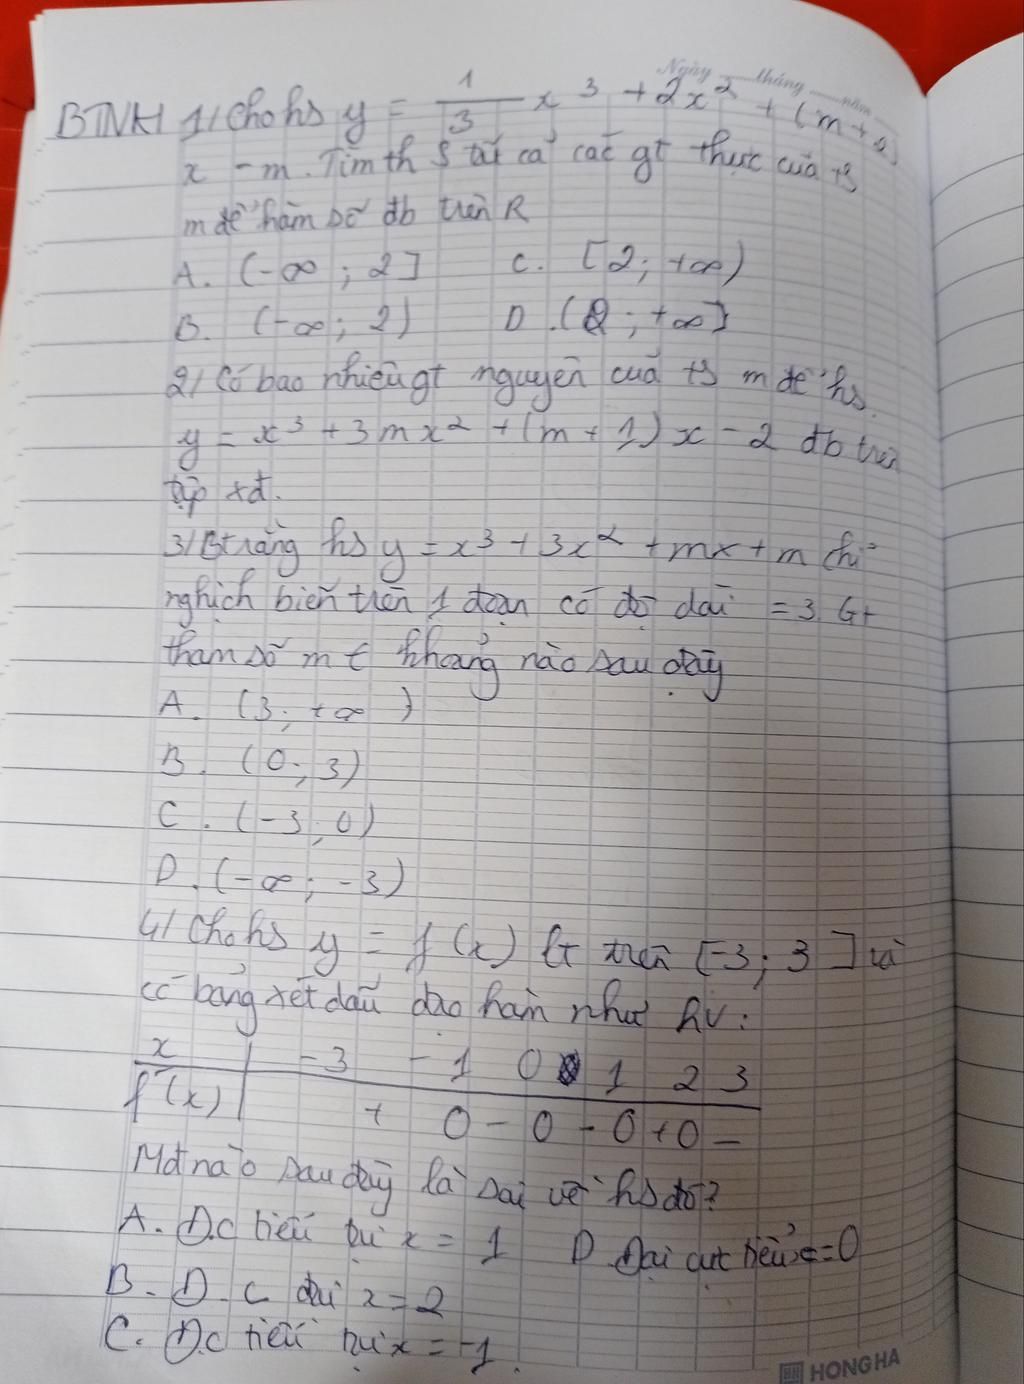 Ngày tháng năm
BTNH 1/ Cho hs y = 1/3 x³ + 2x² + (m+2)
x - m. Tìm th S tất cả các gt thực của ts
m để hàm số đb trên R
A. (-∞ ; 2] C. [2 ; +∞)
B. (-∞ ; 2) D. (2 ; +∞]
2/ Có bao nhiêu gt nguyên của ts m để hs
y = x³ + 3mx² + (m + 1)x - 2 đb trên
tập xđ.
3/ Bt rằng hs y = x³ + 3x² + mx + m chỉ
nghịch biến trên 1 đoạn có độ dài = 3 Gt
tham số m ∈ khoảng nào sau đây
A. (3 ; +∞ )
B. (0 ; 3)
C. (-3 ; 0)
D. (-∞ ; -3)
4/ Cho hs y = f(x) lt trên [-3 ; 3] và
có bảng xét dấu đạo hàm như hv :
x -3 -1 0 1 2 3
f'(x) + 0 - 0 - 0 + 0 -
Mđ nào sau đây là sai về hs đó?
A. Đ.c tiểu tại x = 1 D. Đại cực tiểu x = 0
B. Đ. c đại x = 2
C. Đ.c tiểu tại x = -1.
HONG HA